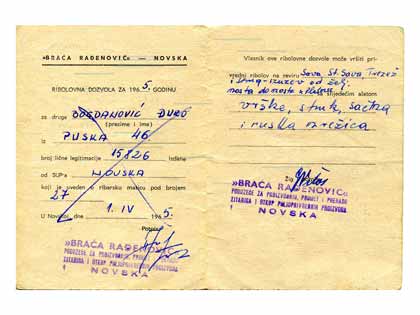 »BRAĆA RAĐENOVIĆ« — NOVSKA
RIBOLOVNA DOZVOLA ZA 1965. GODINU
za druga BOGDANOVIĆ ĐURO
(prezime i ime)
iz PUSKA 46
broj lične legitimacije 15826 izdane
od SUP-a NOVSKA
koji je sveden u ribarsku maticu pod brojem
27
U Novskoj, 1. IV 1965.
»BRAĆA RAĐENOVIĆ«
PODUZEĆE ZA PROIZVODNJU, PROMET I PRERADU
ŽITARICA I OTKUP POLJOPRIVREDNIH PROIZVODA
NOVSKA
Vlasnik ove ribolovne dozvole može vršiti pri-
vredni ribolov na reviru Sava, St. Sava, Trebež
od želj.
mosta do mosta slijedećim alatom
vrške, struk, sačma
i ruska mrežica
»BRAĆA RAĐENOVIĆ«
PODUZEĆE ZA PROIZVODNJU, PROMET I PRERADU
ŽITARICA I OTKUP POLJOPRIVREDNIH PROIZVODA
NOVSKA